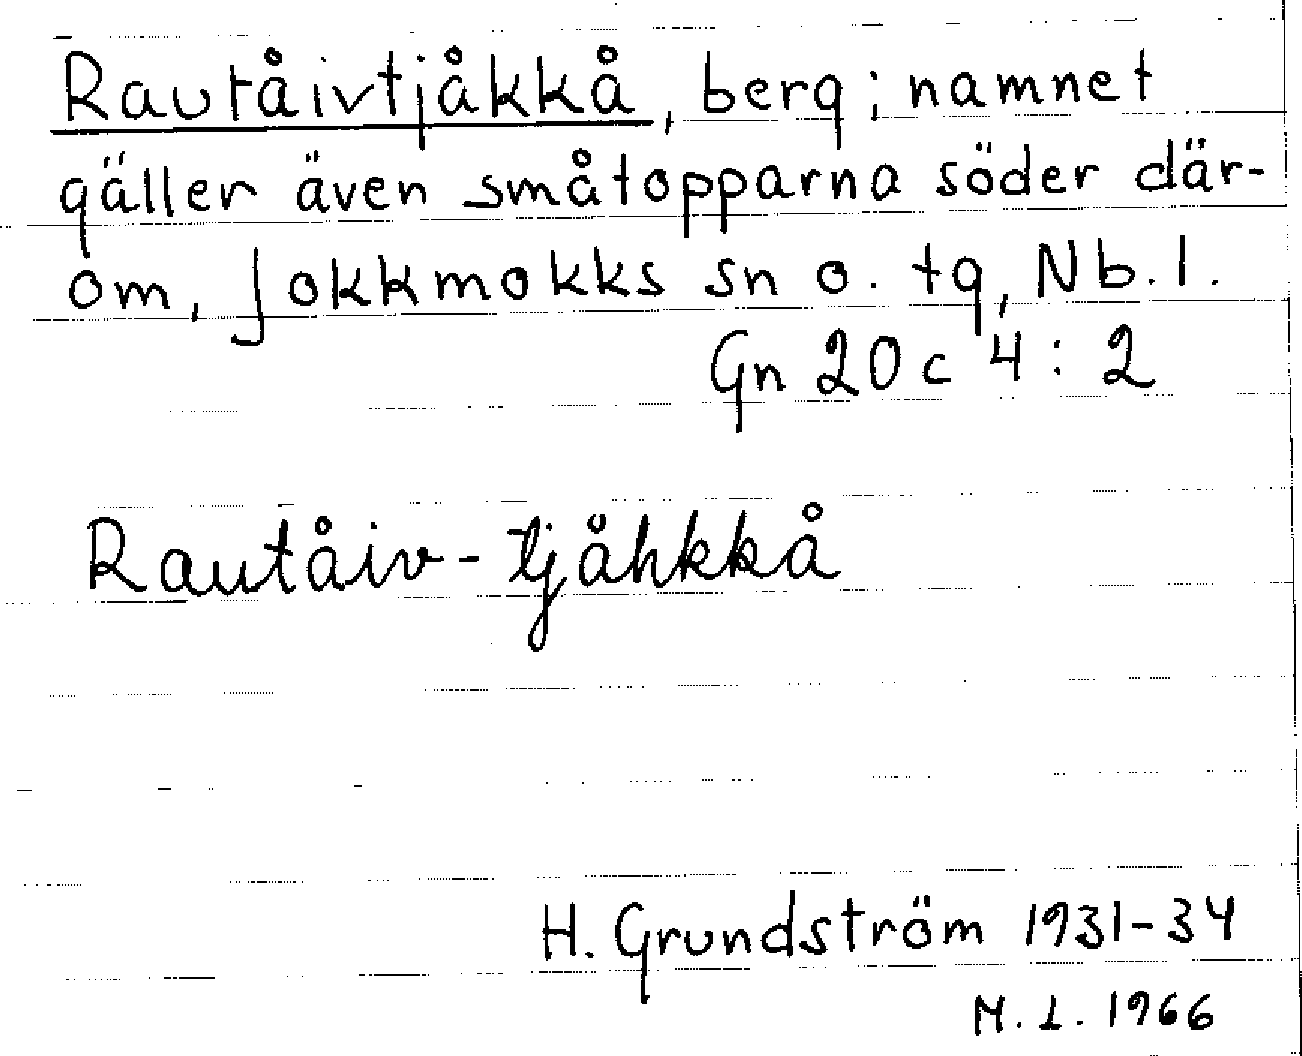 Rautåivtjåkkå, berg; namnet
gäller även småtopparna söder där-
om, Jokkmokks sn o. tg, Nb. l.
Gn 20c 4:2
Rautåiv-tjåhkkå
H. Grundström 1931-34
M. L. 1966